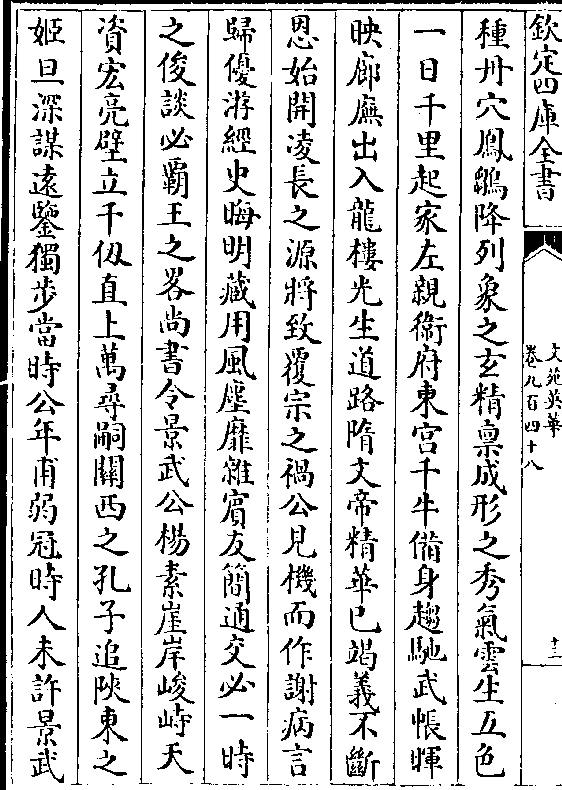 欽定四庫全書
文苑英華
卷九百四十八
十三
種丹穴鳳鶵降列象之玄精稟成形之秀氣雲生五色
一日千里起家左親衞府東宮千牛備身趨馳武帳暉
映廊廡出入龍樓光生道路隋文帝精華已竭義不斷
恩始開凌長之源將致覆宗之禍公見機而作謝病言
歸優游經史晦明藏用風塵靡雜賓友簡通交必一時
之俊談必霸王之畧尚書令景武公楊素崖岸峻峙天
資宏亮壁立千仭直上萬尋嗣關西之孔子追陜東之
姬旦深謀遠鑒獨步當時公年甫弱冠時人未許景武